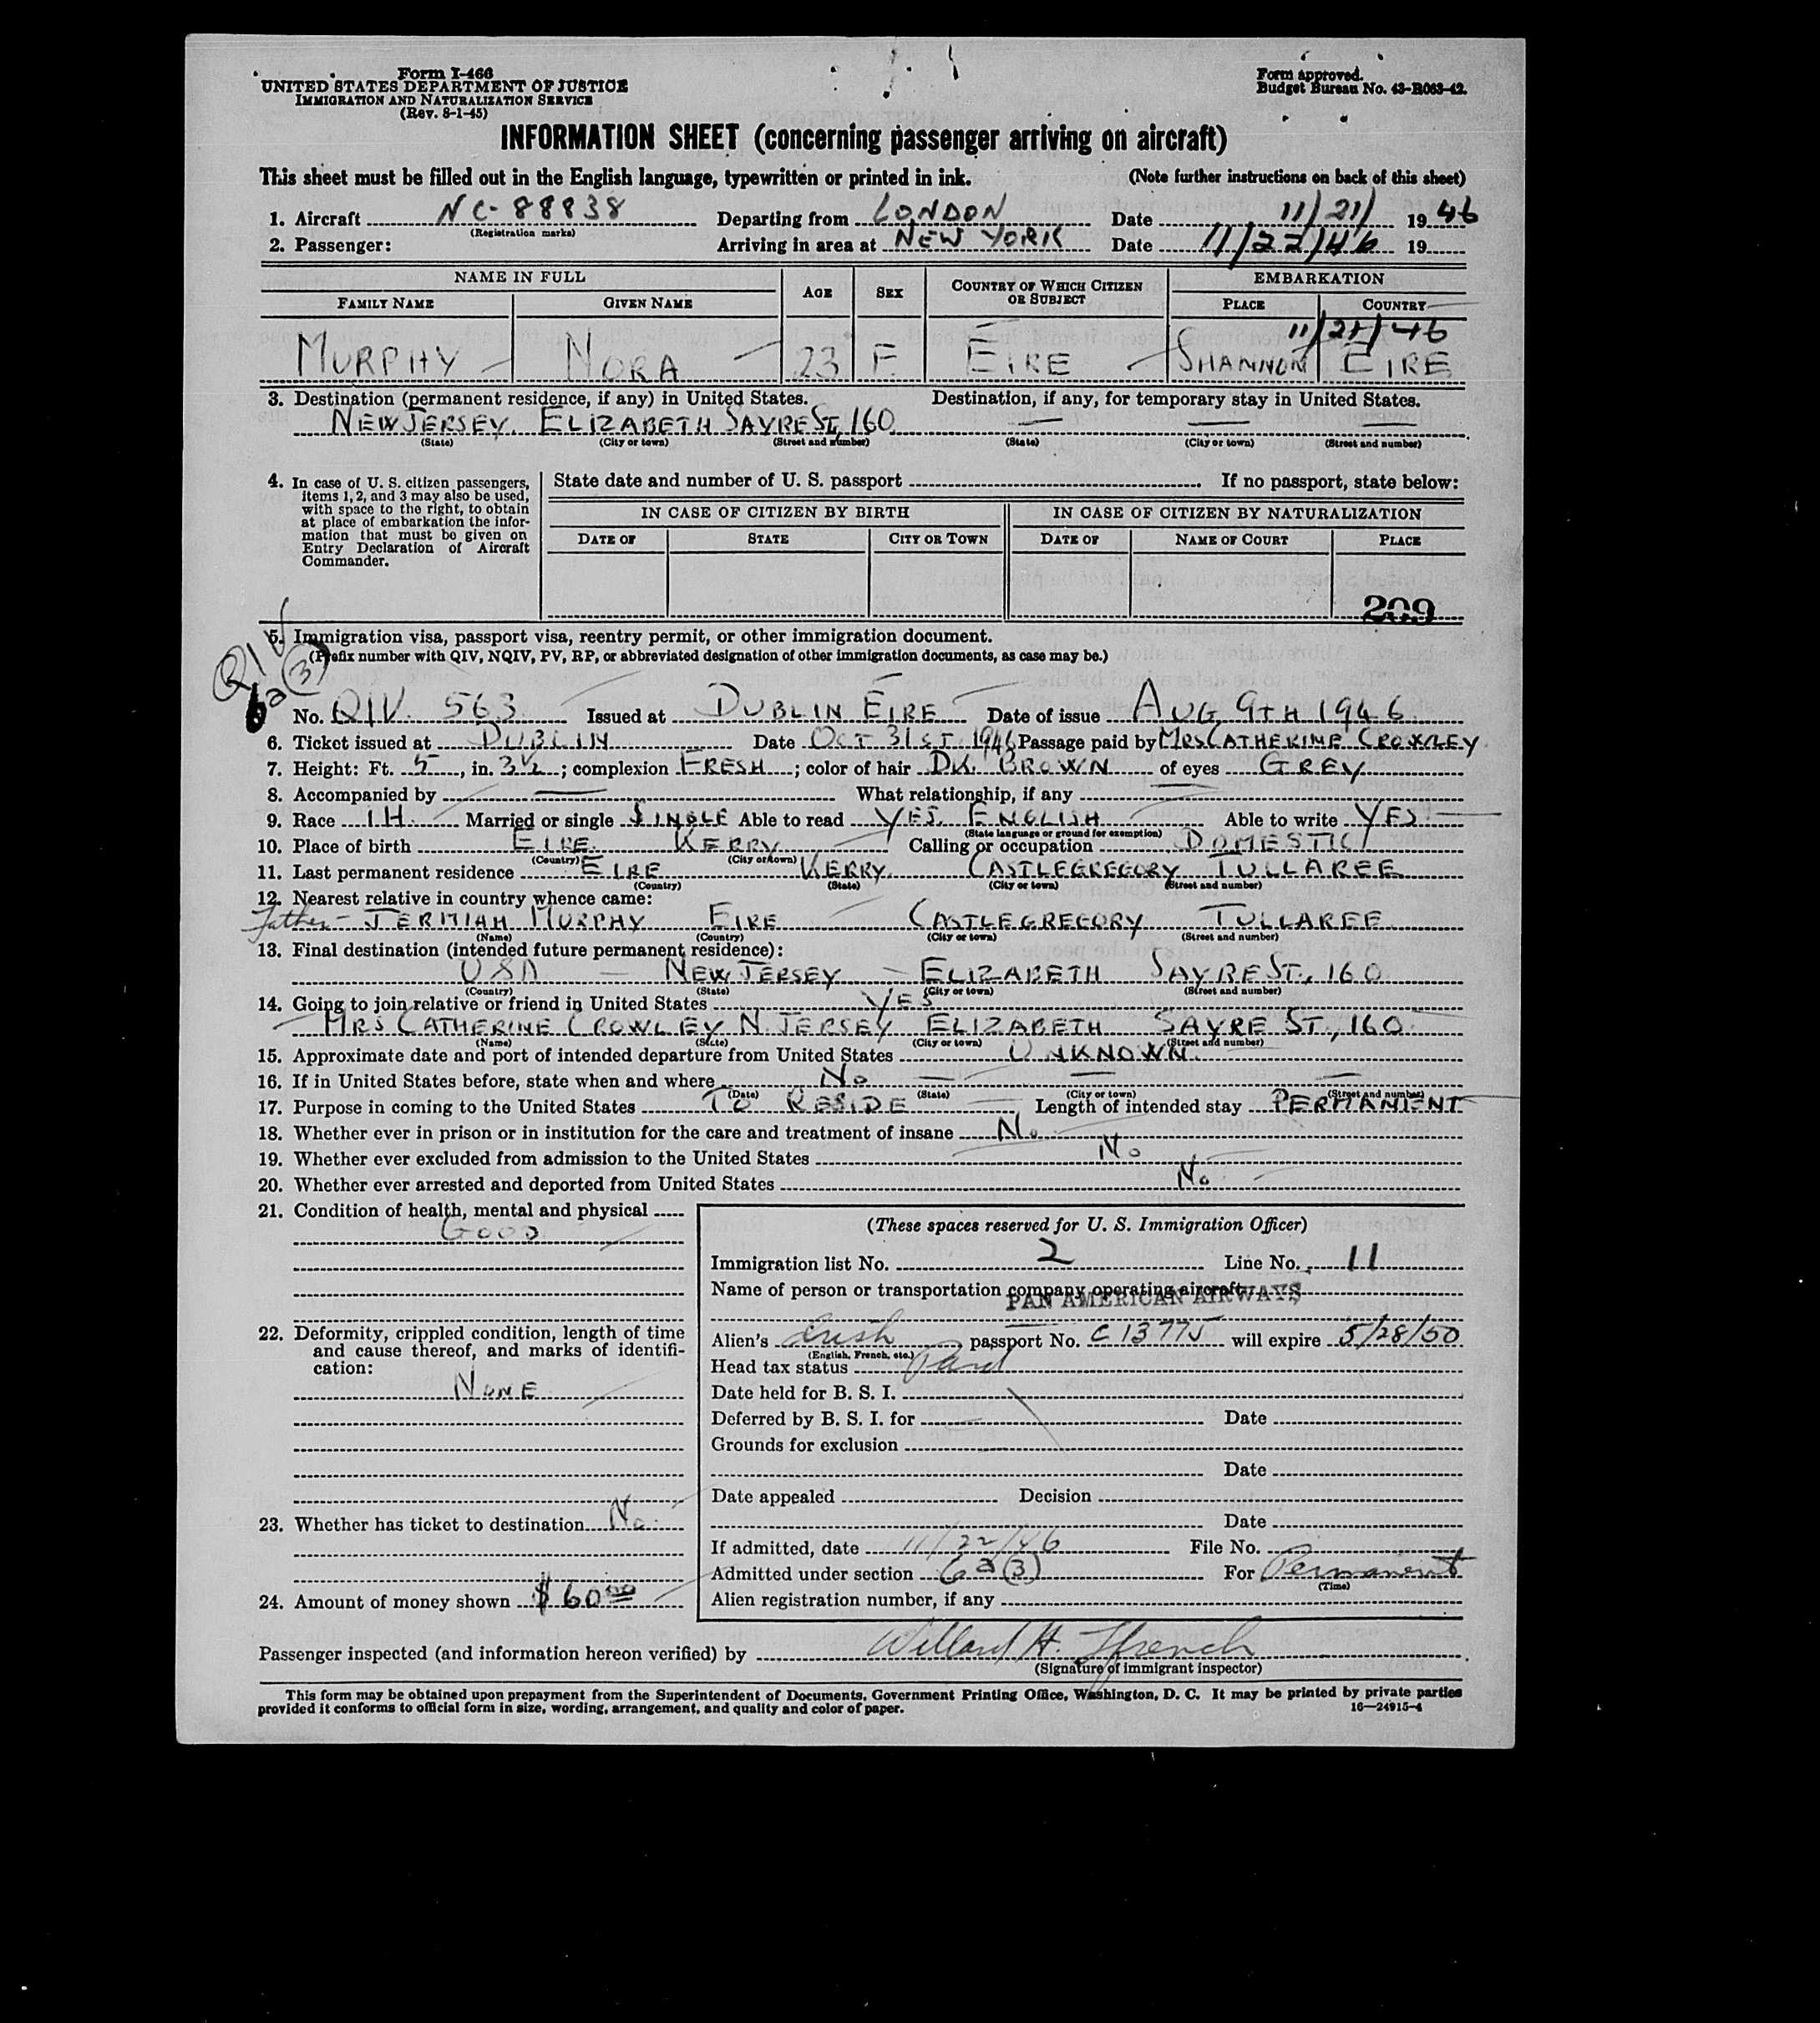 Form I-466
UNITED STATES DEPARTMENT OF JUSTICE
IMMIGRATION AND NATURALIZATION SERVICE
(Rev. 8-1-45)
Form approved.
Budget Bureau No. 43-R063-42.
INFORMATION SHEET (concerning passenger arriving on aircraft)
This sheet must be filled out in the English language, typewritten or printed in ink. (Note further instructions on back of this sheet)
1. Aircraft NC-88838 Departing from LONDON Date 11/21/ 19 46
(Registration marks)
2. Passenger: Arriving in area at NEW YORK Date 11/22/46 19
NAME IN FULL AGE SEX COUNTRY OF WHICH CITIZEN OR SUBJECT EMBARKATION
FAMILY NAME GIVEN NAME PLACE COUNTRY
11/21/46
MURPHY NORA 23 F. EIRE SHANNON EIRE
3. Destination (permanent residence, if any) in United States. Destination, if any, for temporary stay in United States.
NEW JERSEY. ELIZABETH SAYRE ST, 160. — — —
(State) (City or town) (Street and number) (State) (City or town) (Street and number)
4. In case of U. S. citizen passengers, items 1, 2, and 3 may also be used, with space to the right, to obtain at place of embarkation the information that must be given on Entry Declaration of Aircraft Commander.
State date and number of U. S. passport If no passport, state below:
IN CASE OF CITIZEN BY BIRTH IN CASE OF CITIZEN BY NATURALIZATION
DATE OF STATE CITY OR TOWN DATE OF NAME OF COURT PLACE
209
QIV
6a(3)
5. Immigration visa, passport visa, reentry permit, or other immigration document.
(Prefix number with QIV, NQIV, PV, RP, or abbreviated designation of other immigration documents, as case may be.)
No. QIV. 563 Issued at DUBLIN EIRE Date of issue AUG 9TH 1946
6. Ticket issued at DUBLIN Date OCT 31ST 1946 Passage paid by MRS CATHERINE CROWLEY
7. Height: Ft. 5, in. 3½; complexion FRESH; color of hair DK. BROWN of eyes GREY
8. Accompanied by — What relationship, if any —
9. Race IH. Married or single SINGLE Able to read YES. ENGLISH Able to write YES
(State language or ground for exemption)
10. Place of birth EIRE. KERRY Calling or occupation DOMESTIC
(Country) (City or town)
11. Last permanent residence EIRE KERRY. CASTLEGREGORY TULLAREE
(Country) (State) (City or town) (Street and number)
12. Nearest relative in country whence came:
Father - JERMIAH MURPHY EIRE CASTLEGREGORY TULLAREE
(Name) (Country) (City or town) (Street and number)
13. Final destination (intended future permanent residence):
USA — NEW JERSEY — ELIZABETH SAYRE ST., 160
(Country) (State) (City or town) (Street and number)
14. Going to join relative or friend in United States YES
MRS CATHERINE CROWLEY N. JERSEY ELIZABETH SAYRE ST., 160
(Name) (State) (City or town) (Street and number)
15. Approximate date and port of intended departure from United States UNKNOWN.
16. If in United States before, state when and where No — — —
(Date) (State) (City or town) (Street and number)
17. Purpose in coming to the United States TO RESIDE Length of intended stay PERMANENT
18. Whether ever in prison or in institution for the care and treatment of insane No
19. Whether ever excluded from admission to the United States No
20. Whether ever arrested and deported from United States No
21. Condition of health, mental and physical
GOOD
22. Deformity, crippled condition, length of time and cause thereof, and marks of identification:
NONE
23. Whether has ticket to destination No
24. Amount of money shown $60.00
(These spaces reserved for U. S. Immigration Officer)
Immigration list No. 2 Line No. 11
Name of person or transportation company operating aircraft
PAN AMERICAN AIRWAYS
Alien's Irish passport No. C 13775 will expire 5/28/50
(English, French, etc.)
Head tax status Paid
Date held for B. S. I.
Deferred by B. S. I. for Date
Grounds for exclusion
Date
Date appealed Decision
Date
If admitted, date 11/22/46 File No.
Admitted under section 6a(3) For Permanent
(Time)
Alien registration number, if any
Passenger inspected (and information hereon verified) by Willard H. Ffrench
(Signature of immigrant inspector)
This form may be obtained upon prepayment from the Superintendent of Documents, Government Printing Office, Washington, D. C. It may be printed by private parties
provided it conforms to official form in size, wording, arrangement, and quality and color of paper. 16—24915-4